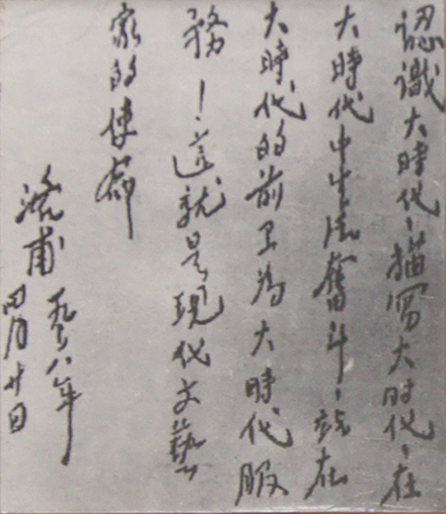 認識大時代、描寫大時代、在
大時代中生活奮斗、站在
大時代的前卫為大時代服
務！這就是現代文藝
家的使命
洗甫 一九三八年
四月廿日